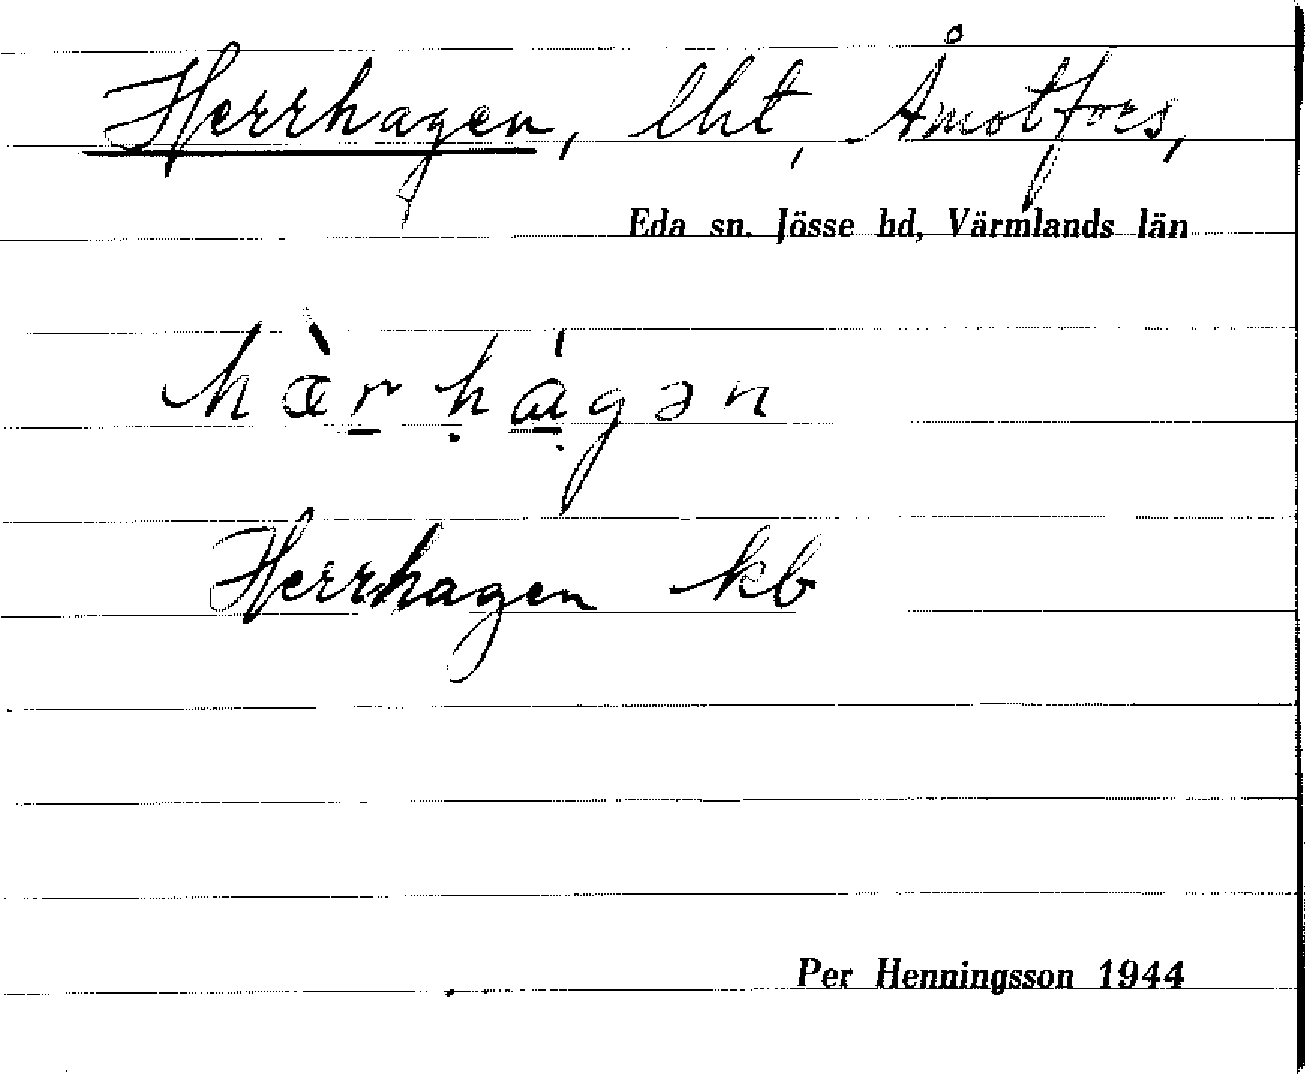 Herrhagen, lht, Åmotfors,
Eda sn. Jösse hd, Värmlands län
hæ̀r̲ḥá̲̣gən
Herrhagen kb
Per Henningsson 1944